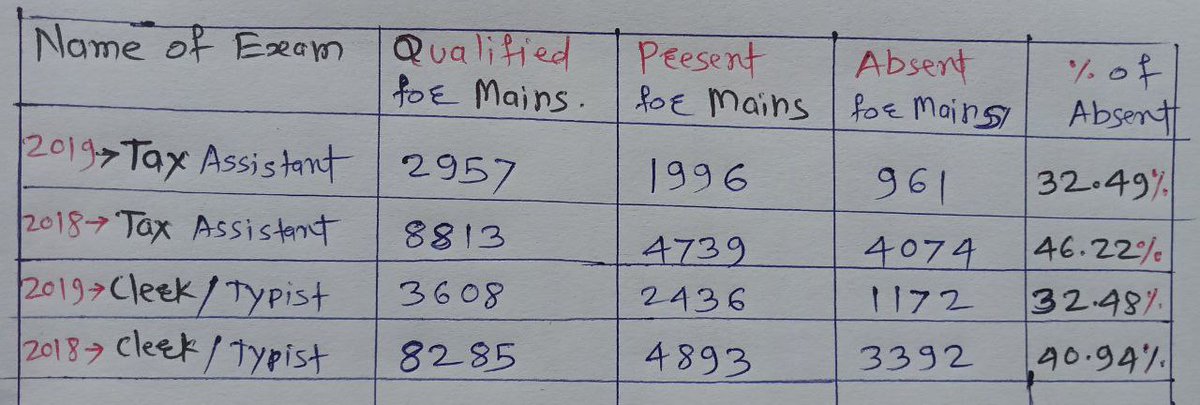 Name of Exam Qualified for Mains. Present for Mains Absent for Mains % of Absent
2019→ Tax Assistant 2957 1996 961 32.49%
2018→ Tax Assistant 8813 4739 4074 46.22%
2019→ Clerk/Typist 3608 2436 1172 32.48%
2018→ Clerk/Typist 8285 4893 3392 40.94%